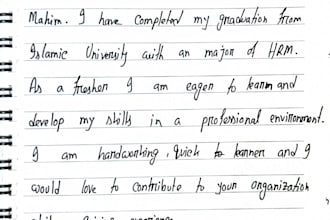 Mahim. I have completed my graduation from
Islamic University with an major of HRM.
As a fresher I am eager to learn and
develop my skills in a professional environment.
I am handworking, quick to lanner and I
would love to contribute to your organization